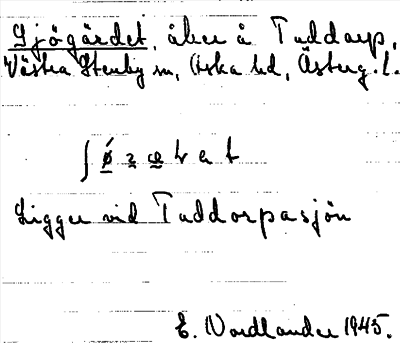 Sjögärdet, åker å Tuddarp,
Västra Stenby sn, Aska hd, Österg. l.
ʃ ǿ z æ t a t
Ligger vid Tuddorpasjön
E. Nordlander 1945.